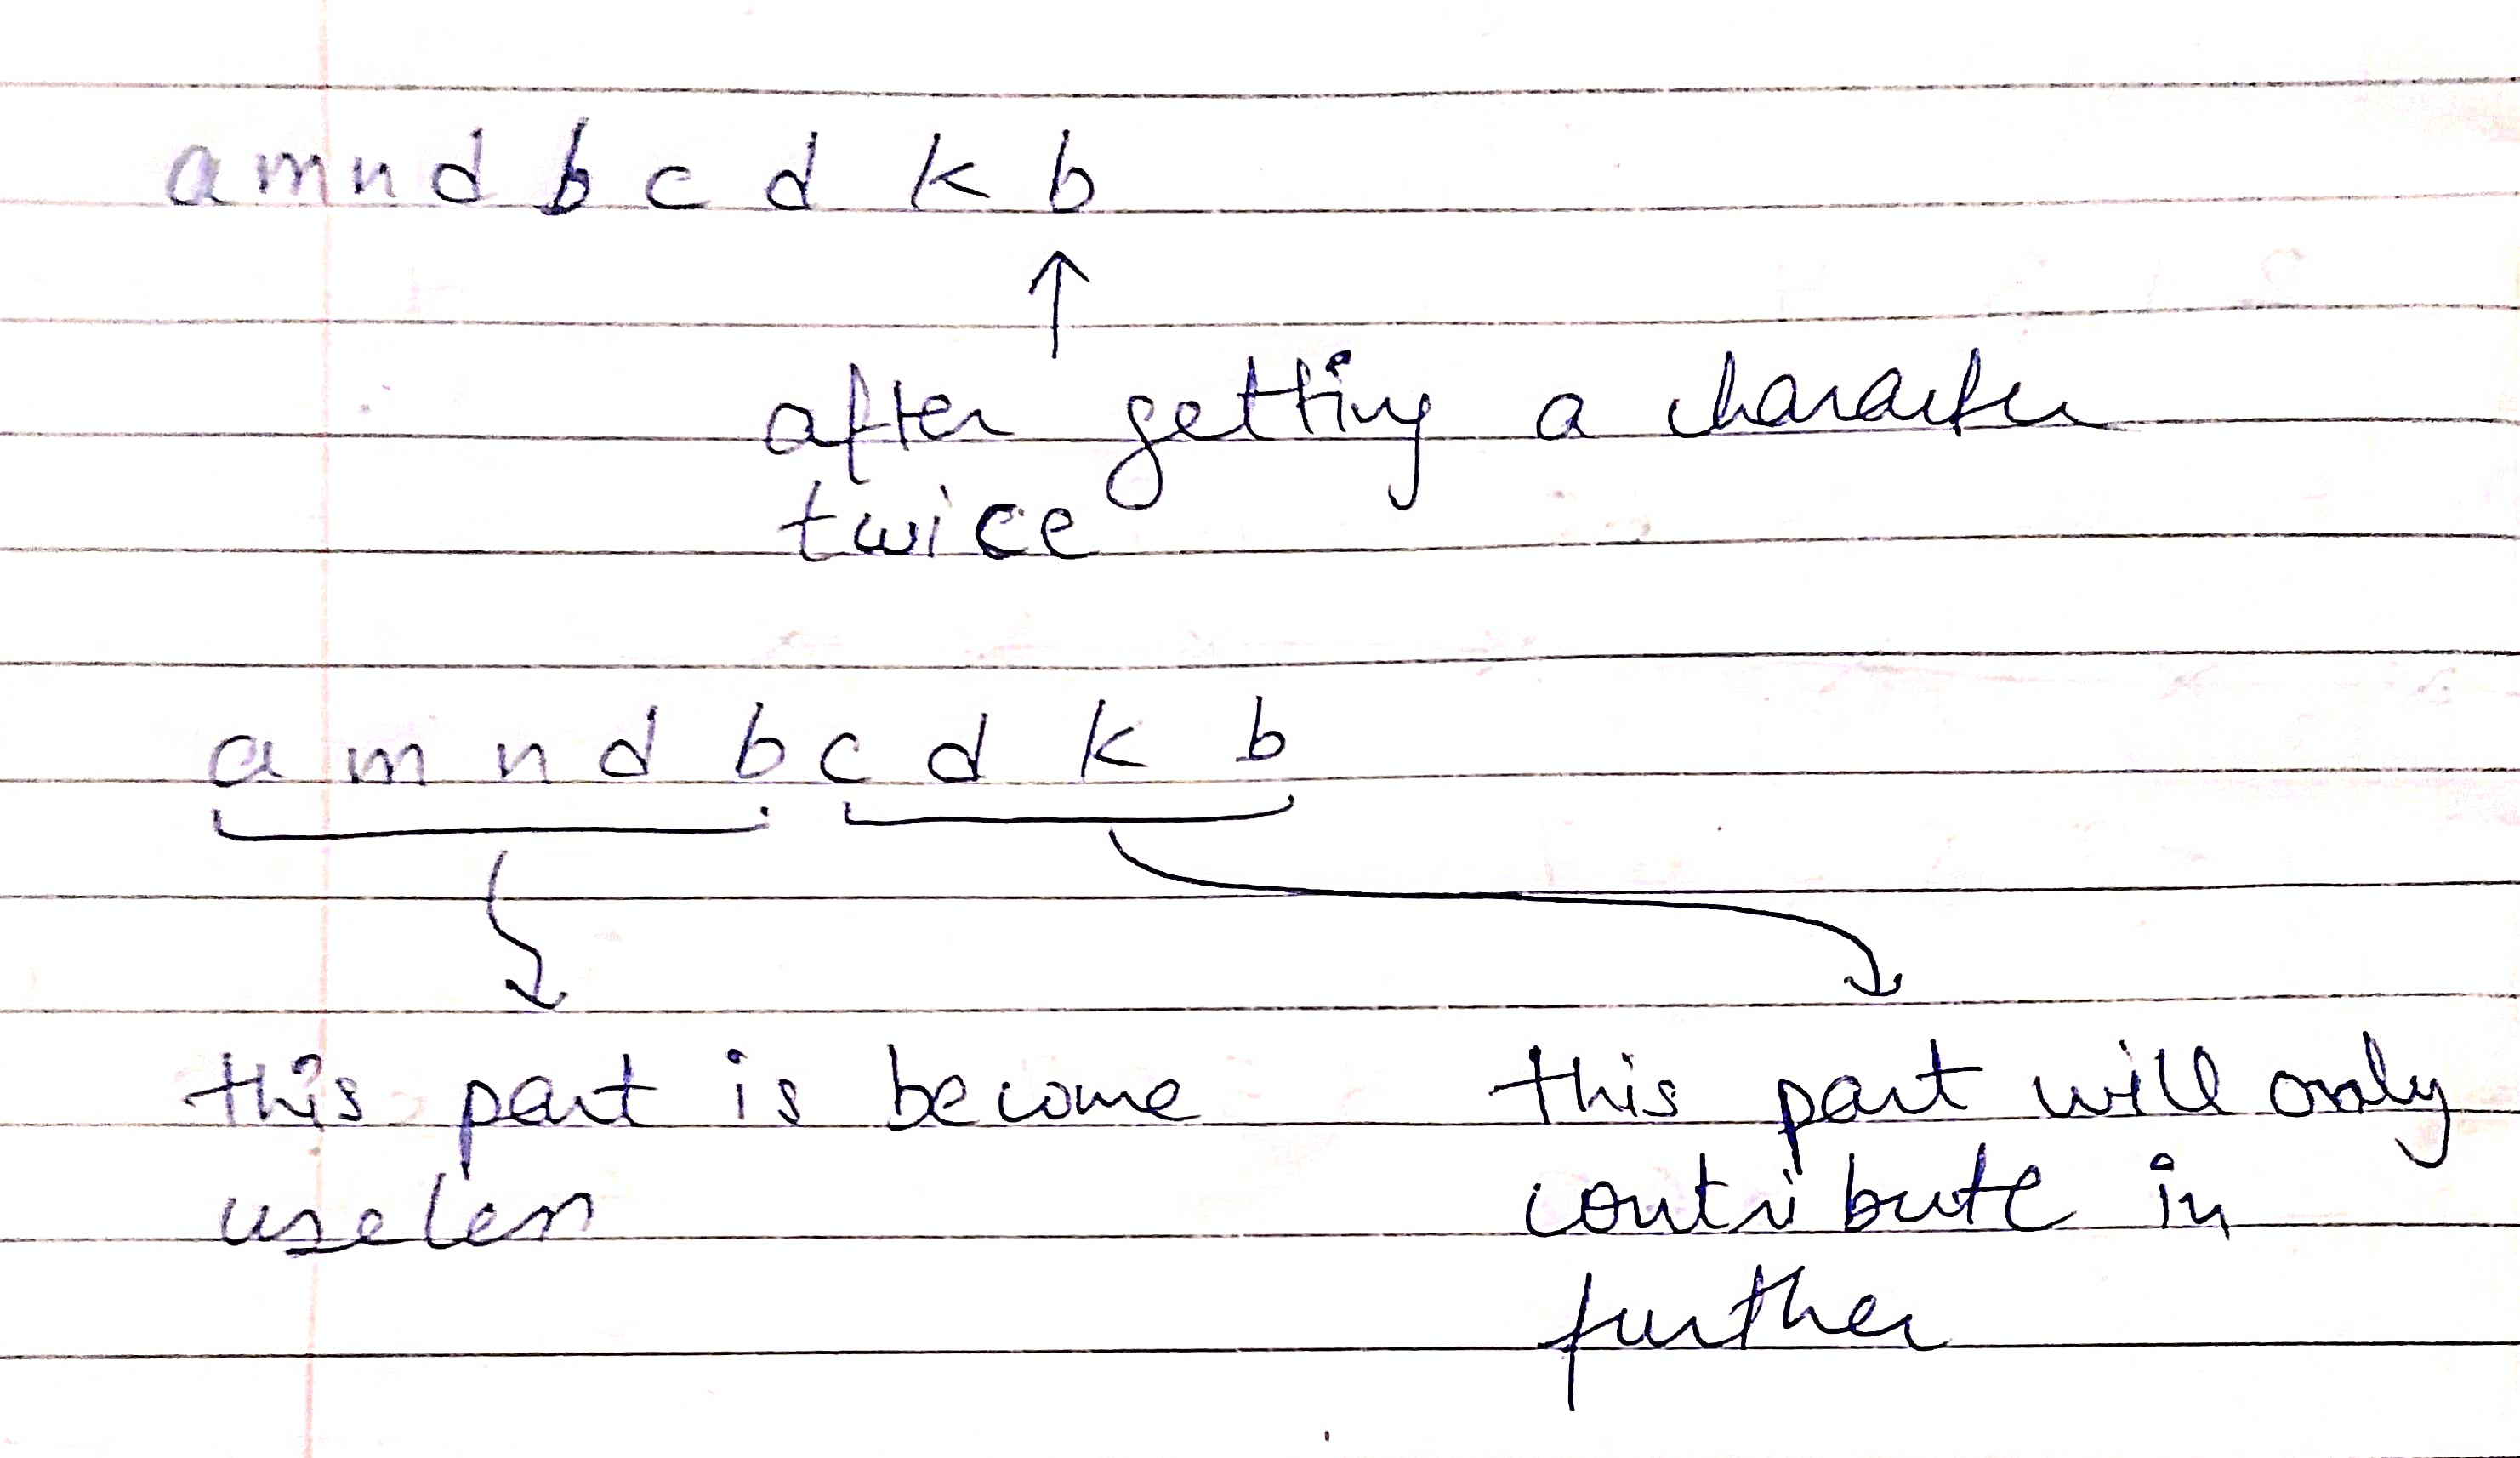 a m n d b c d k b
↑
after getting a character
twice
a m n d b c d k b
this part is become this part will only
useless contribute in
further